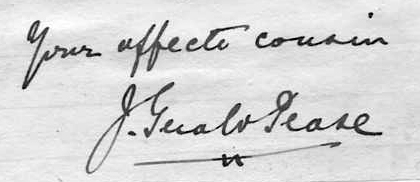 Your affecte cousin
J. Gerald Pease